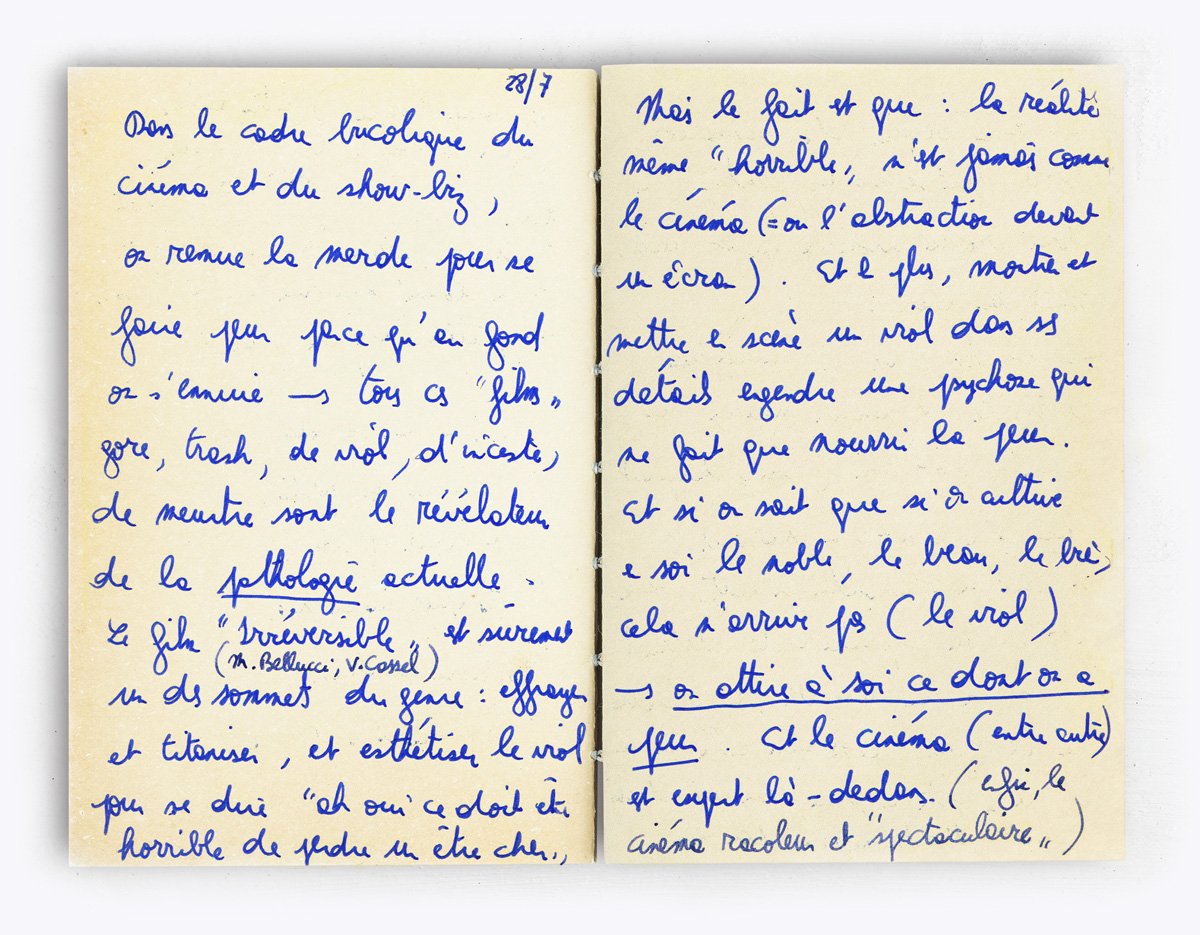 28/7
Dans le cadre bucolique du
cinéma et du show-biz,
on remue la merde pour se
faire peur parce qu'au fond
on s'ennuie → tous ces "films"
gore, trash, de viol, d'inceste,
de meurtre sont le révélateur
de la pathologie actuelle.
Le film "Irréversible" est sûrement
(M. Bellucci, V. Cassel)
un des sommets du genre : effrayer
et titaniser, et esthétiser le viol
pour se dire "ah oui ce doit être
horrible de perdre un être cher"
Mais le fait est que : la réalité
même "horrible", n'est jamais comme
le cinéma (= ou l'abstraction devant
un écran). Et de plus, montrer et
mettre en scène un viol dans ses
détails engendre une psychose qui
ne fait que nourrir la peur.
Et si on sait que si on cultive
en soi le noble, le beau, le
cela n'arrive pas (le viol)
→ on attire à soi ce dont on a
peur. Et le cinéma (entre autre)
est expert là-dedans. (enfin, le
cinéma racoleur et "spectaculaire")